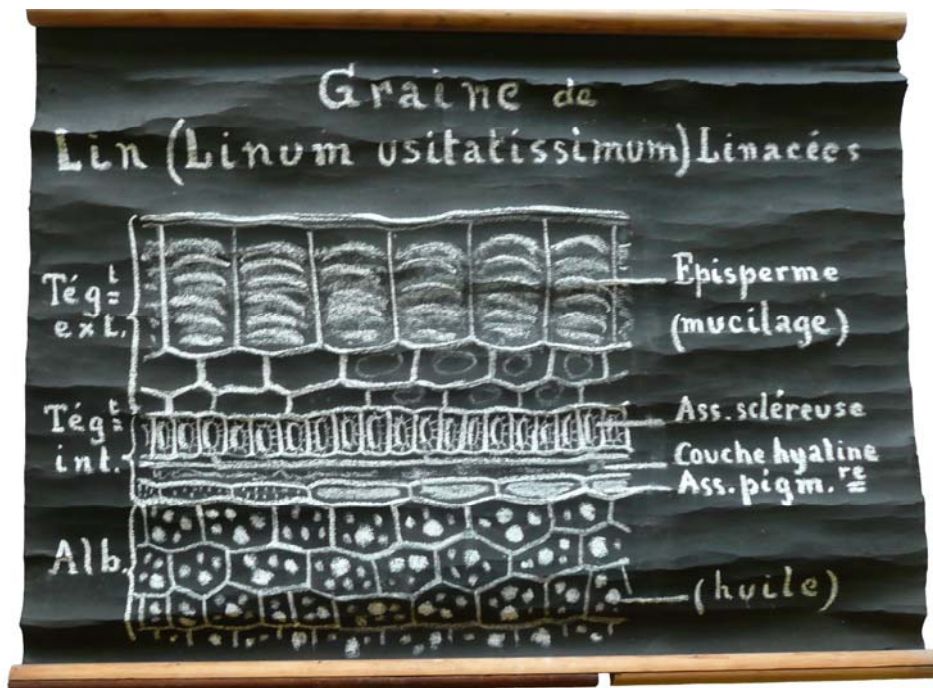 Graine de
Lin (Linum usitatissimum) Linacées
Tég.t
ext.
Episperme
(mucilage)
Tég.t
int.
Ass. scléreuse
Couche hyaline
Ass. pigm.re
Alb.
(huile)